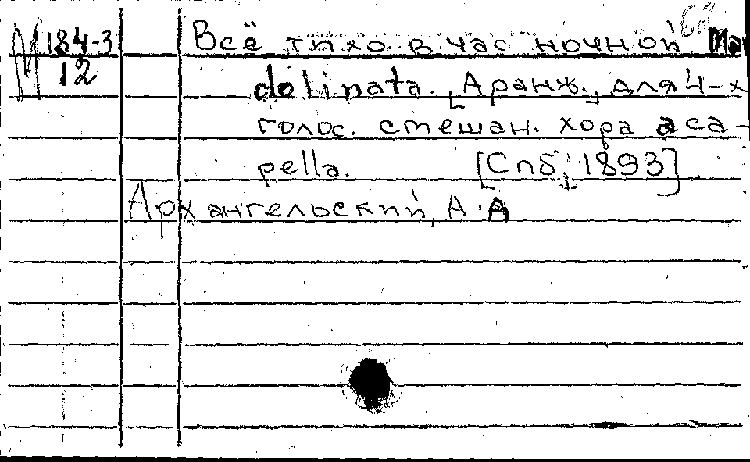 М 184-3
12
Всё тихо в час ночной Man
dolinata. [Аранж.] для 4-х
голос. смешан. хора a ca-
pella. [Спб., 1893]
Архангельский, А.А